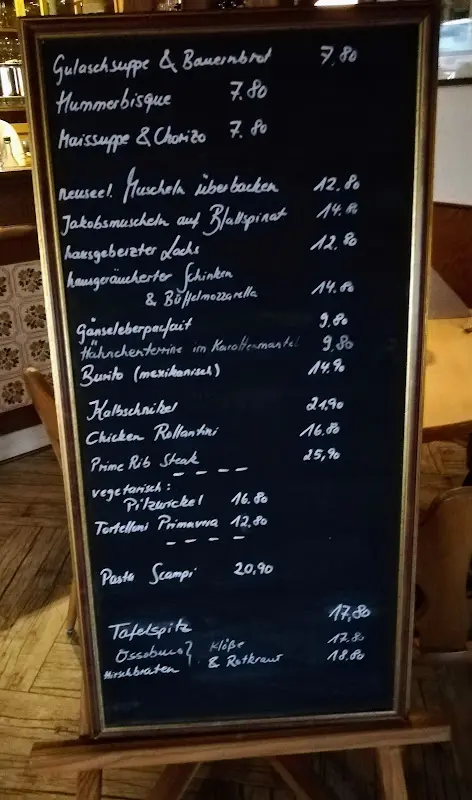 Gulaschsuppe & Bauernbrot 7.80
Hummerbisque 7.80
Maissuppe & Chorizo 7.80
neuseel. Muscheln überbacken 12.80
Jakobsmuscheln auf Blattspinat 14.80
hausgebeizter Lachs 12.80
hausgeräucherter Schinken
& Büffelmozzarella 14.80
Gänseleberparfait 9.80
Hähnchenterrine im Karottenmantel 9.80
Burito (mexikanisch) 14.90
Kalbschnitzel 21,90
Chicken Rollantini 16.80
Prime Rib Steak 25,90
vegetarisch:
Pilzwickel 16.80
Tortelloni Primavera 12,80
Pasta Scampi 20,90
Tafelspitz 17,80
Ossobuco } Klöße 17.80
Hirschbraten & Rotkraut 18.80